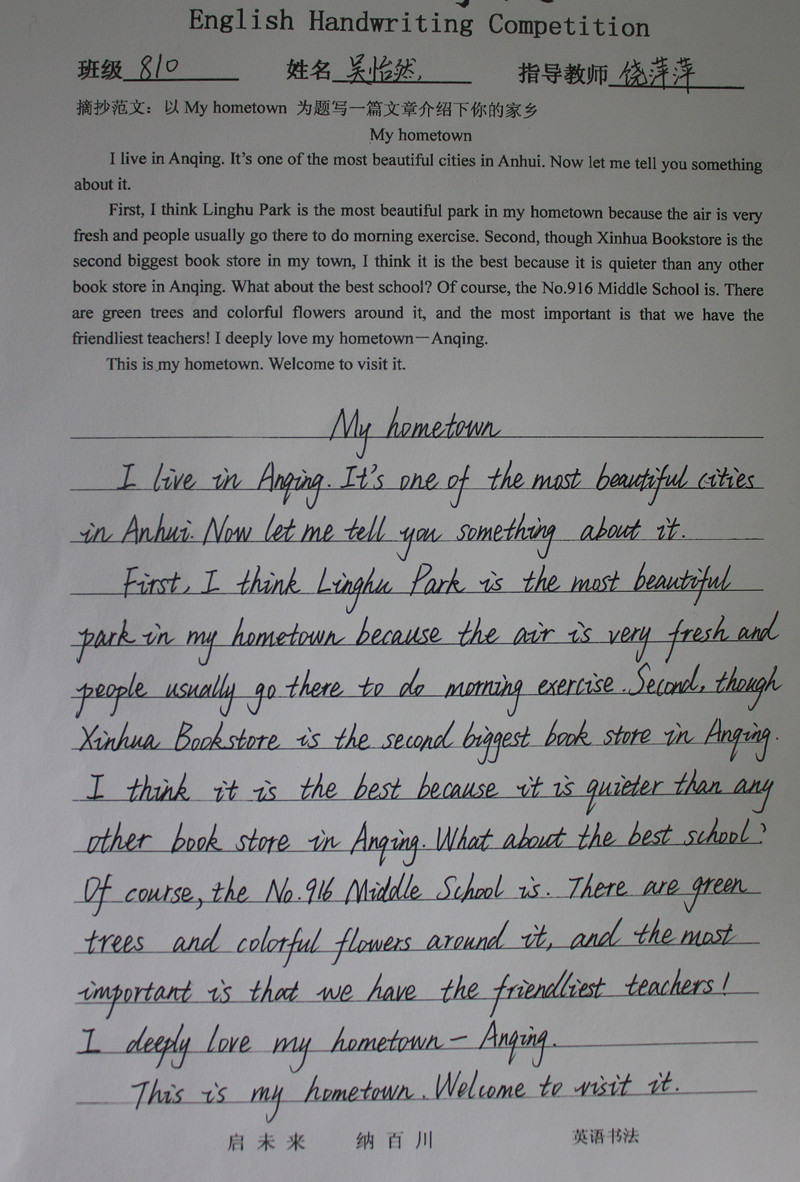 English Handwriting Competition
班级 810 姓名 吴怡然, 指导教师 饶萍萍
摘抄范文：以 My hometown 为题写一篇文章介绍下你的家乡
My hometown
I live in Anqing. It's one of the most beautiful cities in Anhui. Now let me tell you something
about it.
First, I think Linghu Park is the most beautiful park in my hometown because the air is very
fresh and people usually go there to do morning exercise. Second, though Xinhua Bookstore is the
second biggest book store in my town, I think it is the best because it is quieter than any other
book store in Anqing. What about the best school? Of course, the No.916 Middle School is. There
are green trees and colorful flowers around it, and the most important is that we have the
friendliest teachers! I deeply love my hometown—Anqing.
This is my hometown. Welcome to visit it.
My hometown
I live in Anqing. It's one of the most beautiful cities
in Anhui. Now let me tell you something about it.
First, I think Linghu Park is the most beautiful
park in my hometown because the air is very fresh and
people usually go there to do morning exercise. Second, though
Xinhua Bookstore is the second biggest book store in Anqing.
I think it is the best because it is quieter than any
other book store in Anqing. What about the best school?
Of course, the No.916 Middle School is. There are green
trees and colorful flowers around it, and the most
important is that we have the friendliest teachers!
I deeply love my hometown — Anqing.
This is my hometown. Welcome to visit it.
启未来 纳百川 英语书法